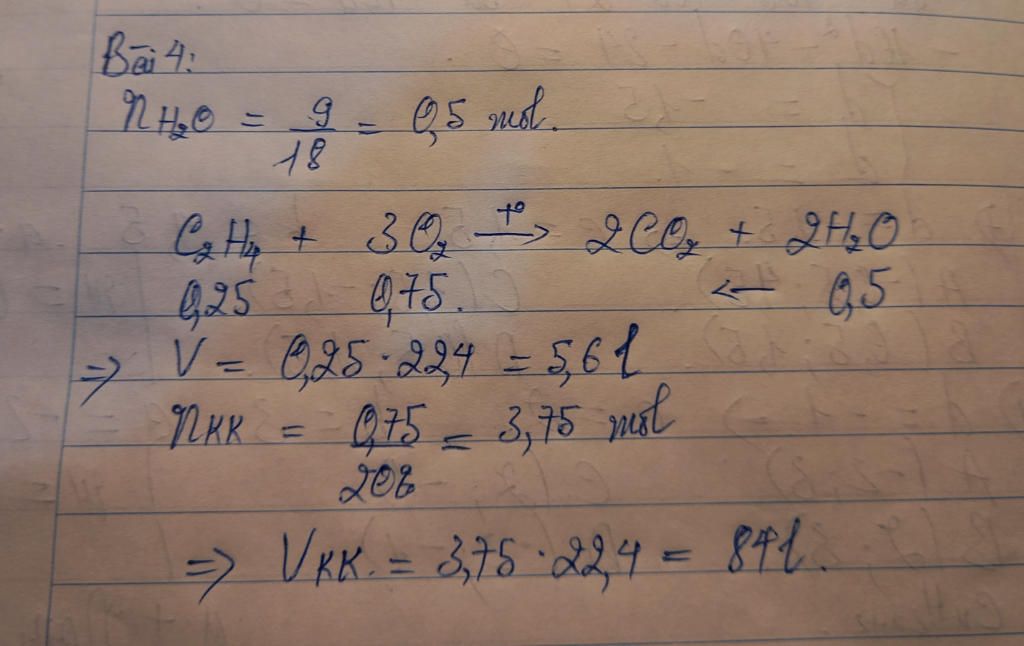 Bài 4:
nH₂O = 9/18 = 0,5 mol.
C₂H₄ + 3O₂ —t°→ 2CO₂ + 2H₂O
0,25 0,75. ← 0,5
⇒ V = 0,25 · 22,4 = 5,6 l
nKK = 0,75/20% = 3,75 mol
⇒ VKK. = 3,75 · 22,4 = 84 l.